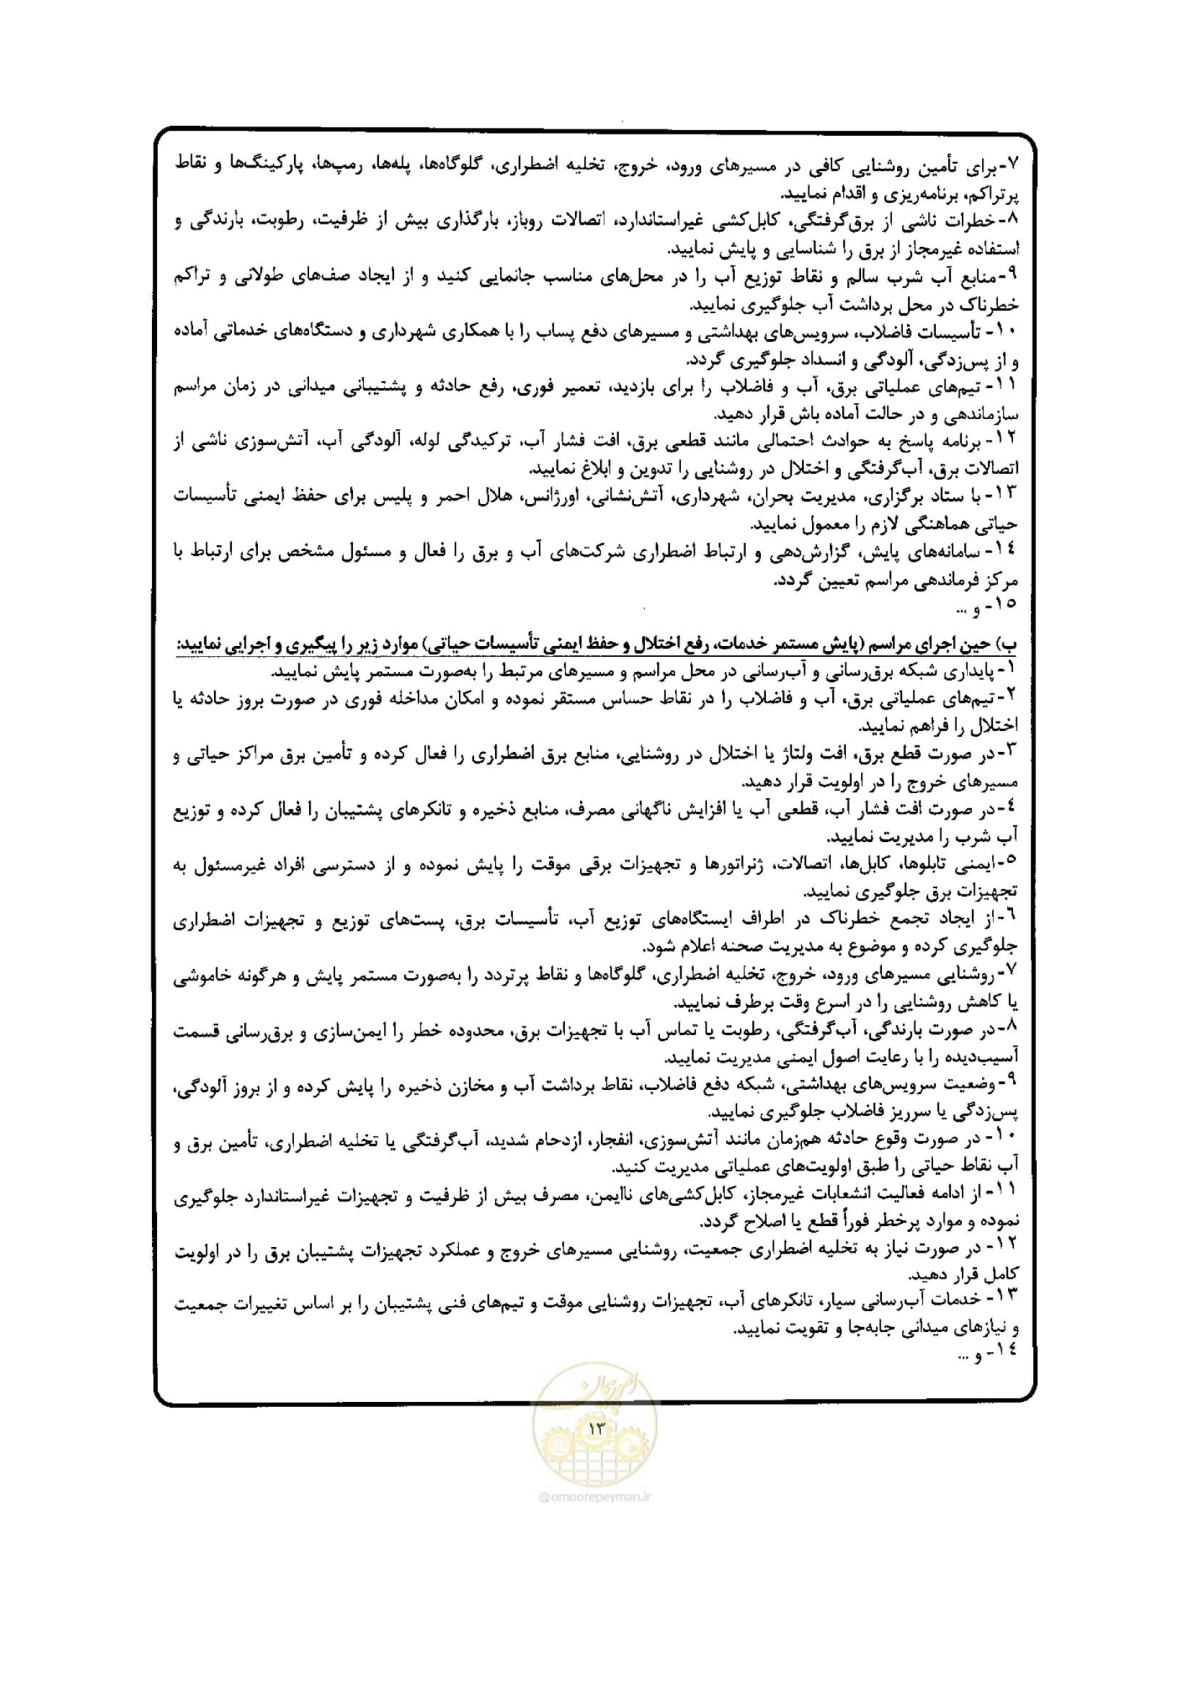 ۷-برای تأمین روشنایی کافی در مسیرهای ورود، خروج، تخلیه اضطراری، گلوگاه‌ها، پله‌ها، رمپ‌ها، پارکینگ‌ها و نقاط
پرتراکم، برنامه‌ریزی و اقدام نمایید.
۸-خطرات ناشی از برق‌گرفتگی، کابل‌کشی غیراستاندارد، اتصالات روباز، بارگذاری بیش از ظرفیت، رطوبت، بارندگی و
استفاده غیرمجاز از برق را شناسایی و پایش نمایید.
۹-منابع آب شرب سالم و نقاط توزیع آب را در محل‌های مناسب جانمایی کنید و از ایجاد صف‌های طولانی و تراکم
خطرناک در محل برداشت آب جلوگیری نمایید.
۱۰- تأسیسات فاضلاب، سرویس‌های بهداشتی و مسیرهای دفع پساب را با همکاری شهرداری و دستگاه‌های خدماتی آماده
و از پس‌زدگی، آلودگی و انسداد جلوگیری گردد.
۱۱- تیم‌های عملیاتی برق، آب و فاضلاب را برای بازدید، تعمیر فوری، رفع حادثه و پشتیبانی میدانی در زمان مراسم
سازماندهی و در حالت آماده باش قرار دهید.
۱۲- برنامه پاسخ به حوادث احتمالی مانند قطعی برق، افت فشار آب، ترکیدگی لوله، آلودگی آب، آتش‌سوزی ناشی از
اتصالات برق، آب‌گرفتگی و اختلال در روشنایی را تدوین و ابلاغ نمایید.
۱۳- با ستاد برگزاری، مدیریت بحران، شهرداری، آتش‌نشانی، اورژانس، هلال احمر و پلیس برای حفظ ایمنی تأسیسات
حیاتی هماهنگی لازم را معمول نمایید.
۱۴- سامانه‌های پایش، گزارش‌دهی و ارتباط اضطراری شرکت‌های آب و برق را فعال و مسئول مشخص برای ارتباط با
مرکز فرماندهی مراسم تعیین گردد.
۱۵- و ...
ب) حین اجرای مراسم (پایش مستمر خدمات، رفع اختلال و حفظ ایمنی تأسیسات حیاتی) موارد زیر را پیگیری و اجرایی نمایید:
۱-پایداری شبکه برق‌رسانی و آب‌رسانی در محل مراسم و مسیرهای مرتبط را به‌صورت مستمر پایش نمایید.
۲-تیم‌های عملیاتی برق، آب و فاضلاب را در نقاط حساس مستقر نموده و امکان مداخله فوری در صورت بروز حادثه یا
اختلال را فراهم نمایید.
۳-در صورت قطع برق، افت ولتاژ یا اختلال در روشنایی، منابع برق اضطراری را فعال کرده و تأمین برق مراکز حیاتی و
مسیرهای خروج را در اولویت قرار دهید.
۴-در صورت افت فشار آب، قطعی آب یا افزایش ناگهانی مصرف، منابع ذخیره و تانکرهای پشتیبان را فعال کرده و توزیع
آب شرب را مدیریت نمایید.
۵-ایمنی تابلوها، کابل‌ها، اتصالات، ژنراتورها و تجهیزات برقی موقت را پایش نموده و از دسترسی افراد غیرمسئول به
تجهیزات برق جلوگیری نمایید.
۶-از ایجاد تجمع خطرناک در اطراف ایستگاه‌های توزیع آب، تأسیسات برق، پست‌های توزیع و تجهیزات اضطراری
جلوگیری کرده و موضوع به مدیریت صحنه اعلام شود.
۷-روشنایی مسیرهای ورود، خروج، تخلیه اضطراری، گلوگاه‌ها و نقاط پرتردد را به‌صورت مستمر پایش و هرگونه خاموشی
یا کاهش روشنایی را در اسرع وقت برطرف نمایید.
۸-در صورت بارندگی، آب‌گرفتگی، رطوبت یا تماس آب با تجهیزات برق، محدوده خطر را ایمن‌سازی و برق‌رسانی قسمت
آسیب‌دیده را با رعایت اصول ایمنی مدیریت نمایید.
۹-وضعیت سرویس‌های بهداشتی، شبکه دفع فاضلاب، نقاط برداشت آب و مخازن ذخیره را پایش کرده و از بروز آلودگی،
پس‌زدگی یا سرریز فاضلاب جلوگیری نمایید.
۱۰- در صورت وقوع حادثه هم‌زمان مانند آتش‌سوزی، انفجار، ازدحام شدید، آب‌گرفتگی یا تخلیه اضطراری، تأمین برق و
آب نقاط حیاتی را طبق اولویت‌های عملیاتی مدیریت کنید.
۱۱- از ادامه فعالیت انشعابات غیرمجاز، کابل‌کشی‌های ناایمن، مصرف بیش از ظرفیت و تجهیزات غیراستاندارد جلوگیری
نموده و موارد پرخطر فوراً قطع یا اصلاح گردد.
۱۲- در صورت نیاز به تخلیه اضطراری جمعیت، روشنایی مسیرهای خروج و عملکرد تجهیزات پشتیبان برق را در اولویت
کامل قرار دهید.
۱۳- خدمات آب‌رسانی سیار، تانکرهای آب، تجهیزات روشنایی موقت و تیم‌های فنی پشتیبان را بر اساس تغییرات جمعیت
و نیازهای میدانی جابه‌جا و تقویت نمایید.
۱۴- و ...
امور پیمان
۱۳
@omoorepeyman.ir